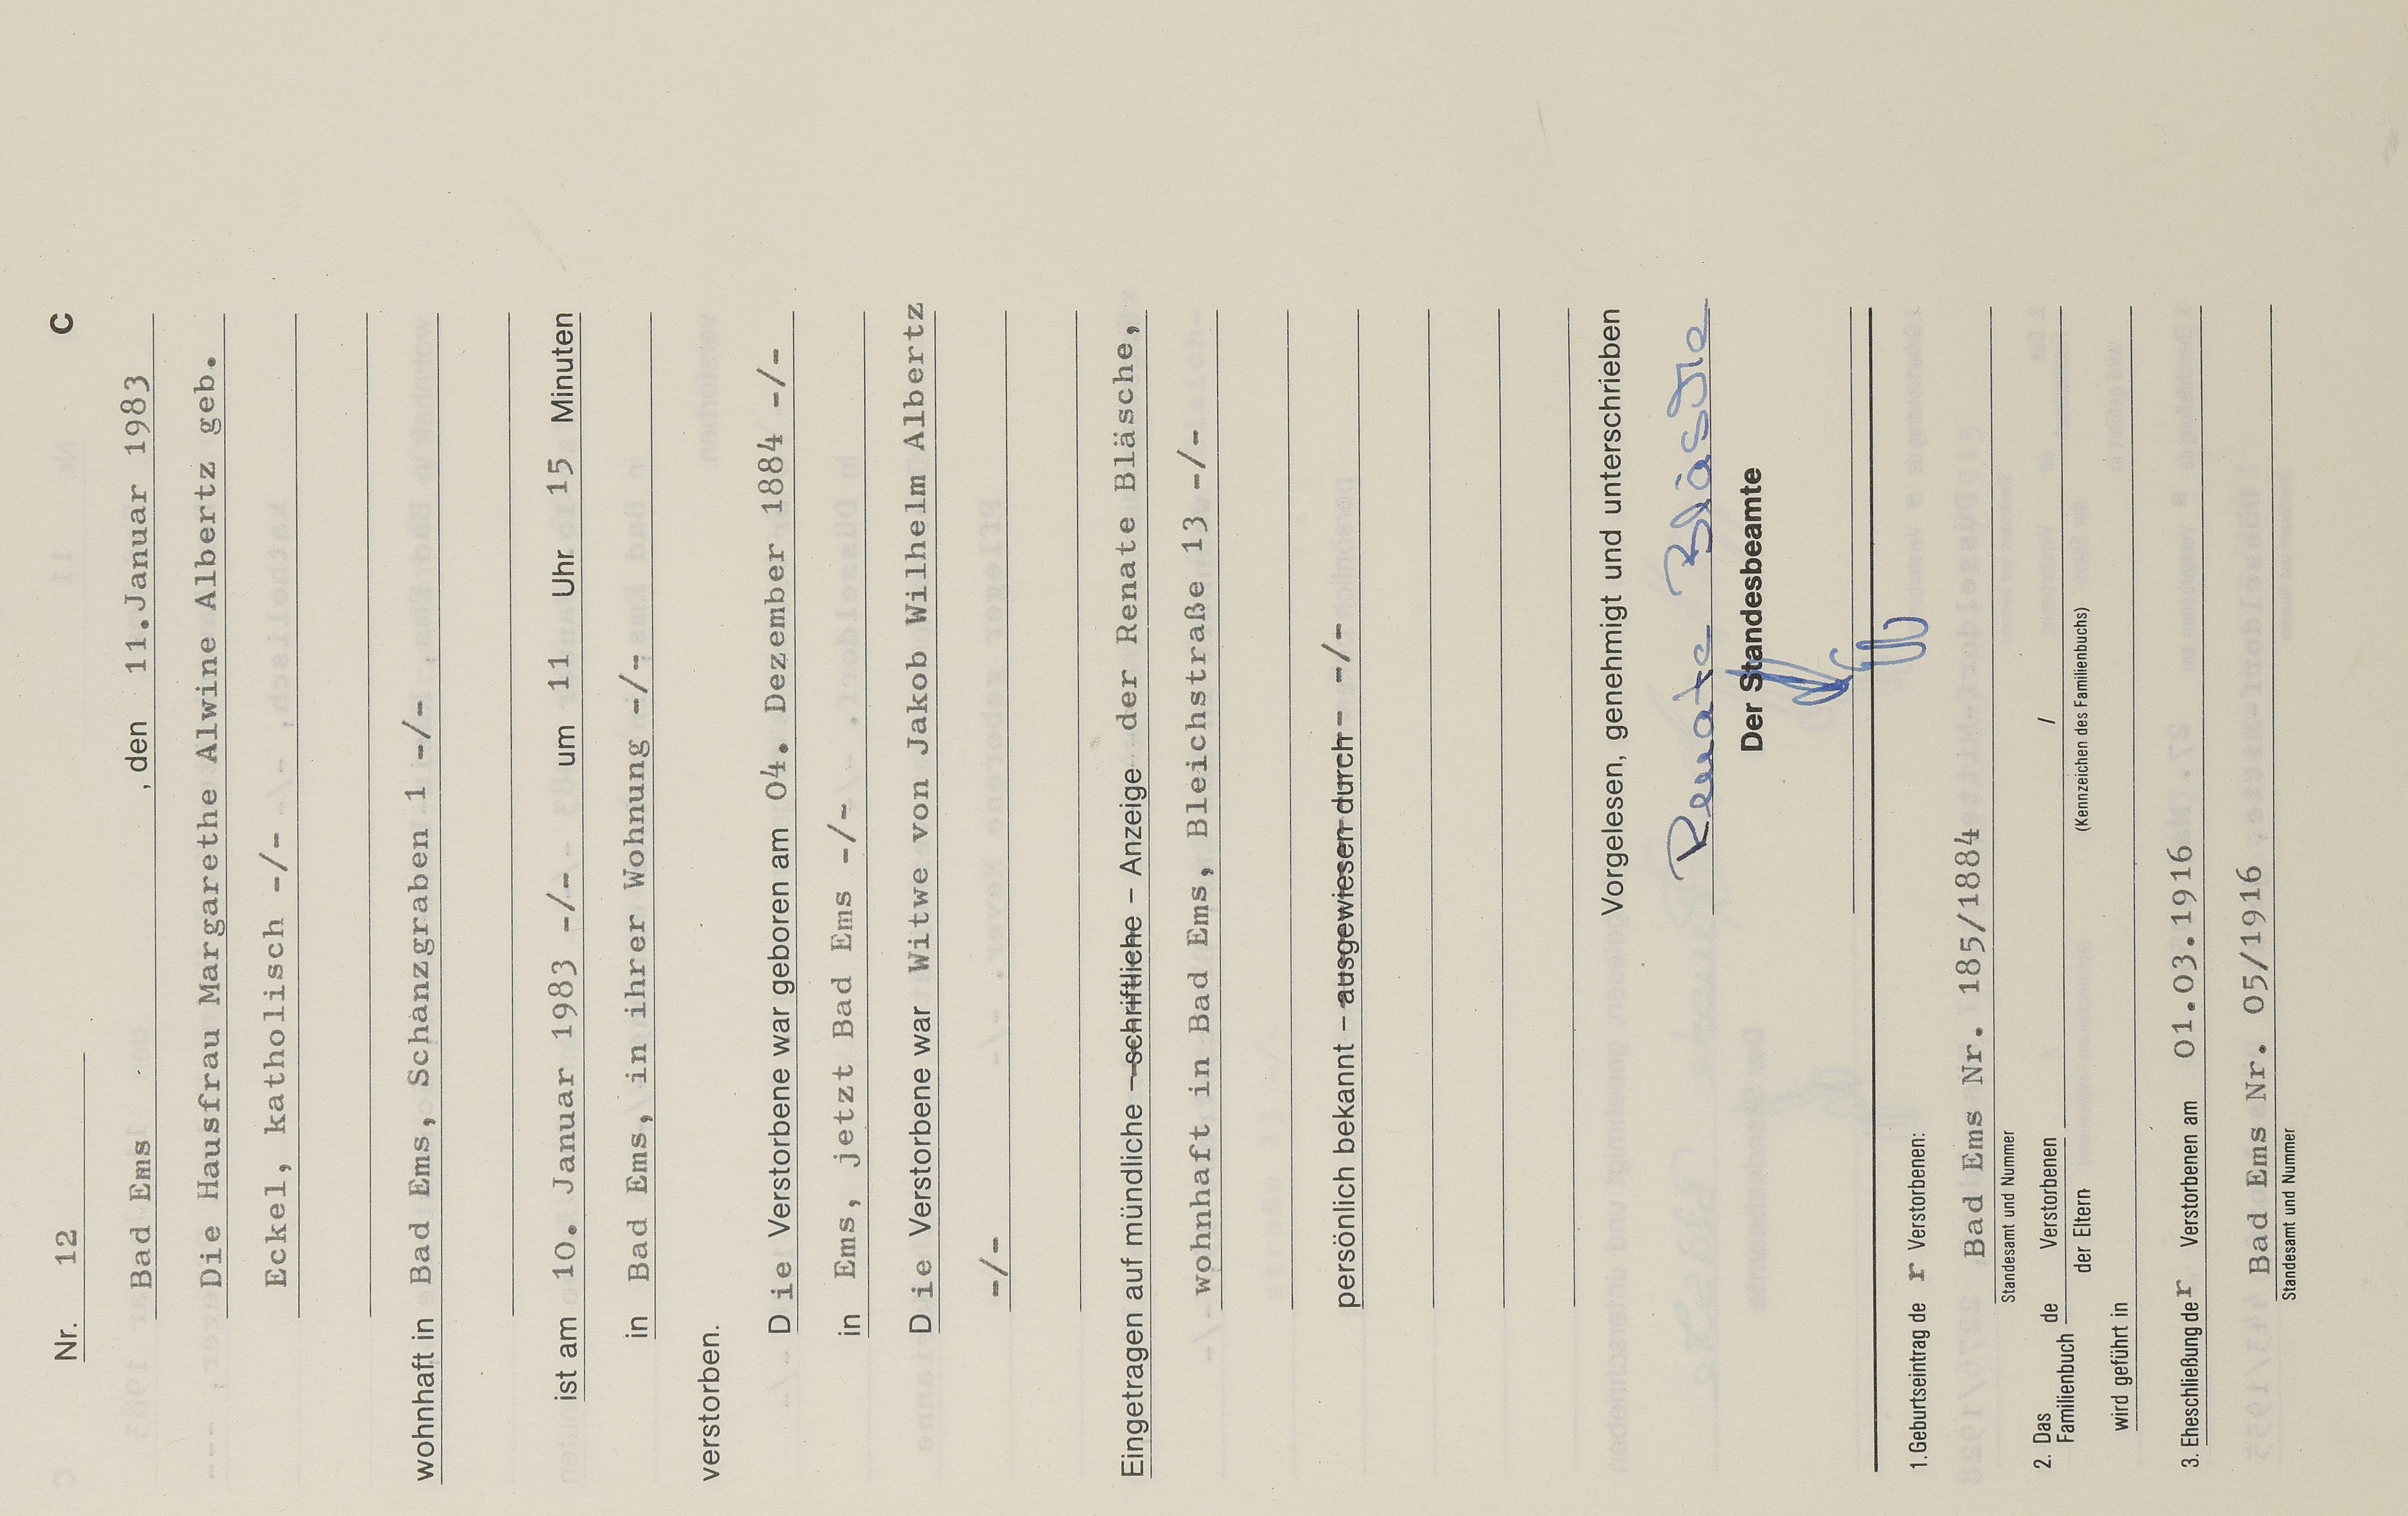 Nr. 12 C
Bad Ems , den 11.Januar 1983
Die Hausfrau Margarethe Alwine Albertz geb.
Eckel, katholisch -/-
wohnhaft in Bad Ems, Schanzgraben 1 -/-
ist am 10. Januar 1983 -/- um 11 Uhr 15 Minuten
in Bad Ems, in ihrer Wohnung -/-
verstorben.
Die Verstorbene war geboren am 04. Dezember 1884 -/-
in Ems, jetzt Bad Ems -/-
Die Verstorbene war Witwe von Jakob Wilhelm Albertz
-/-
Eingetragen auf mündliche – schriftliche – Anzeige der Renate Bläsche,
wohnhaft in Bad Ems, Bleichstraße 13 -/-
persönlich bekannt – ausgewiesen durch – -/-
Vorgelesen, genehmigt und unterschrieben
Renate Bläsche
Der Standesbeamte
1.Geburtseintrag der Verstorbenen:
Bad Ems Nr. 185/1884
Standesamt und Nummer
2. Das Familienbuch de Verstorbenen /
der Eltern (Kennzeichen des Familienbuchs)
wird geführt in
3. Eheschließung der Verstorbenen am 01.03.1916
Bad Ems Nr. 05/1916
Standesamt und Nummer